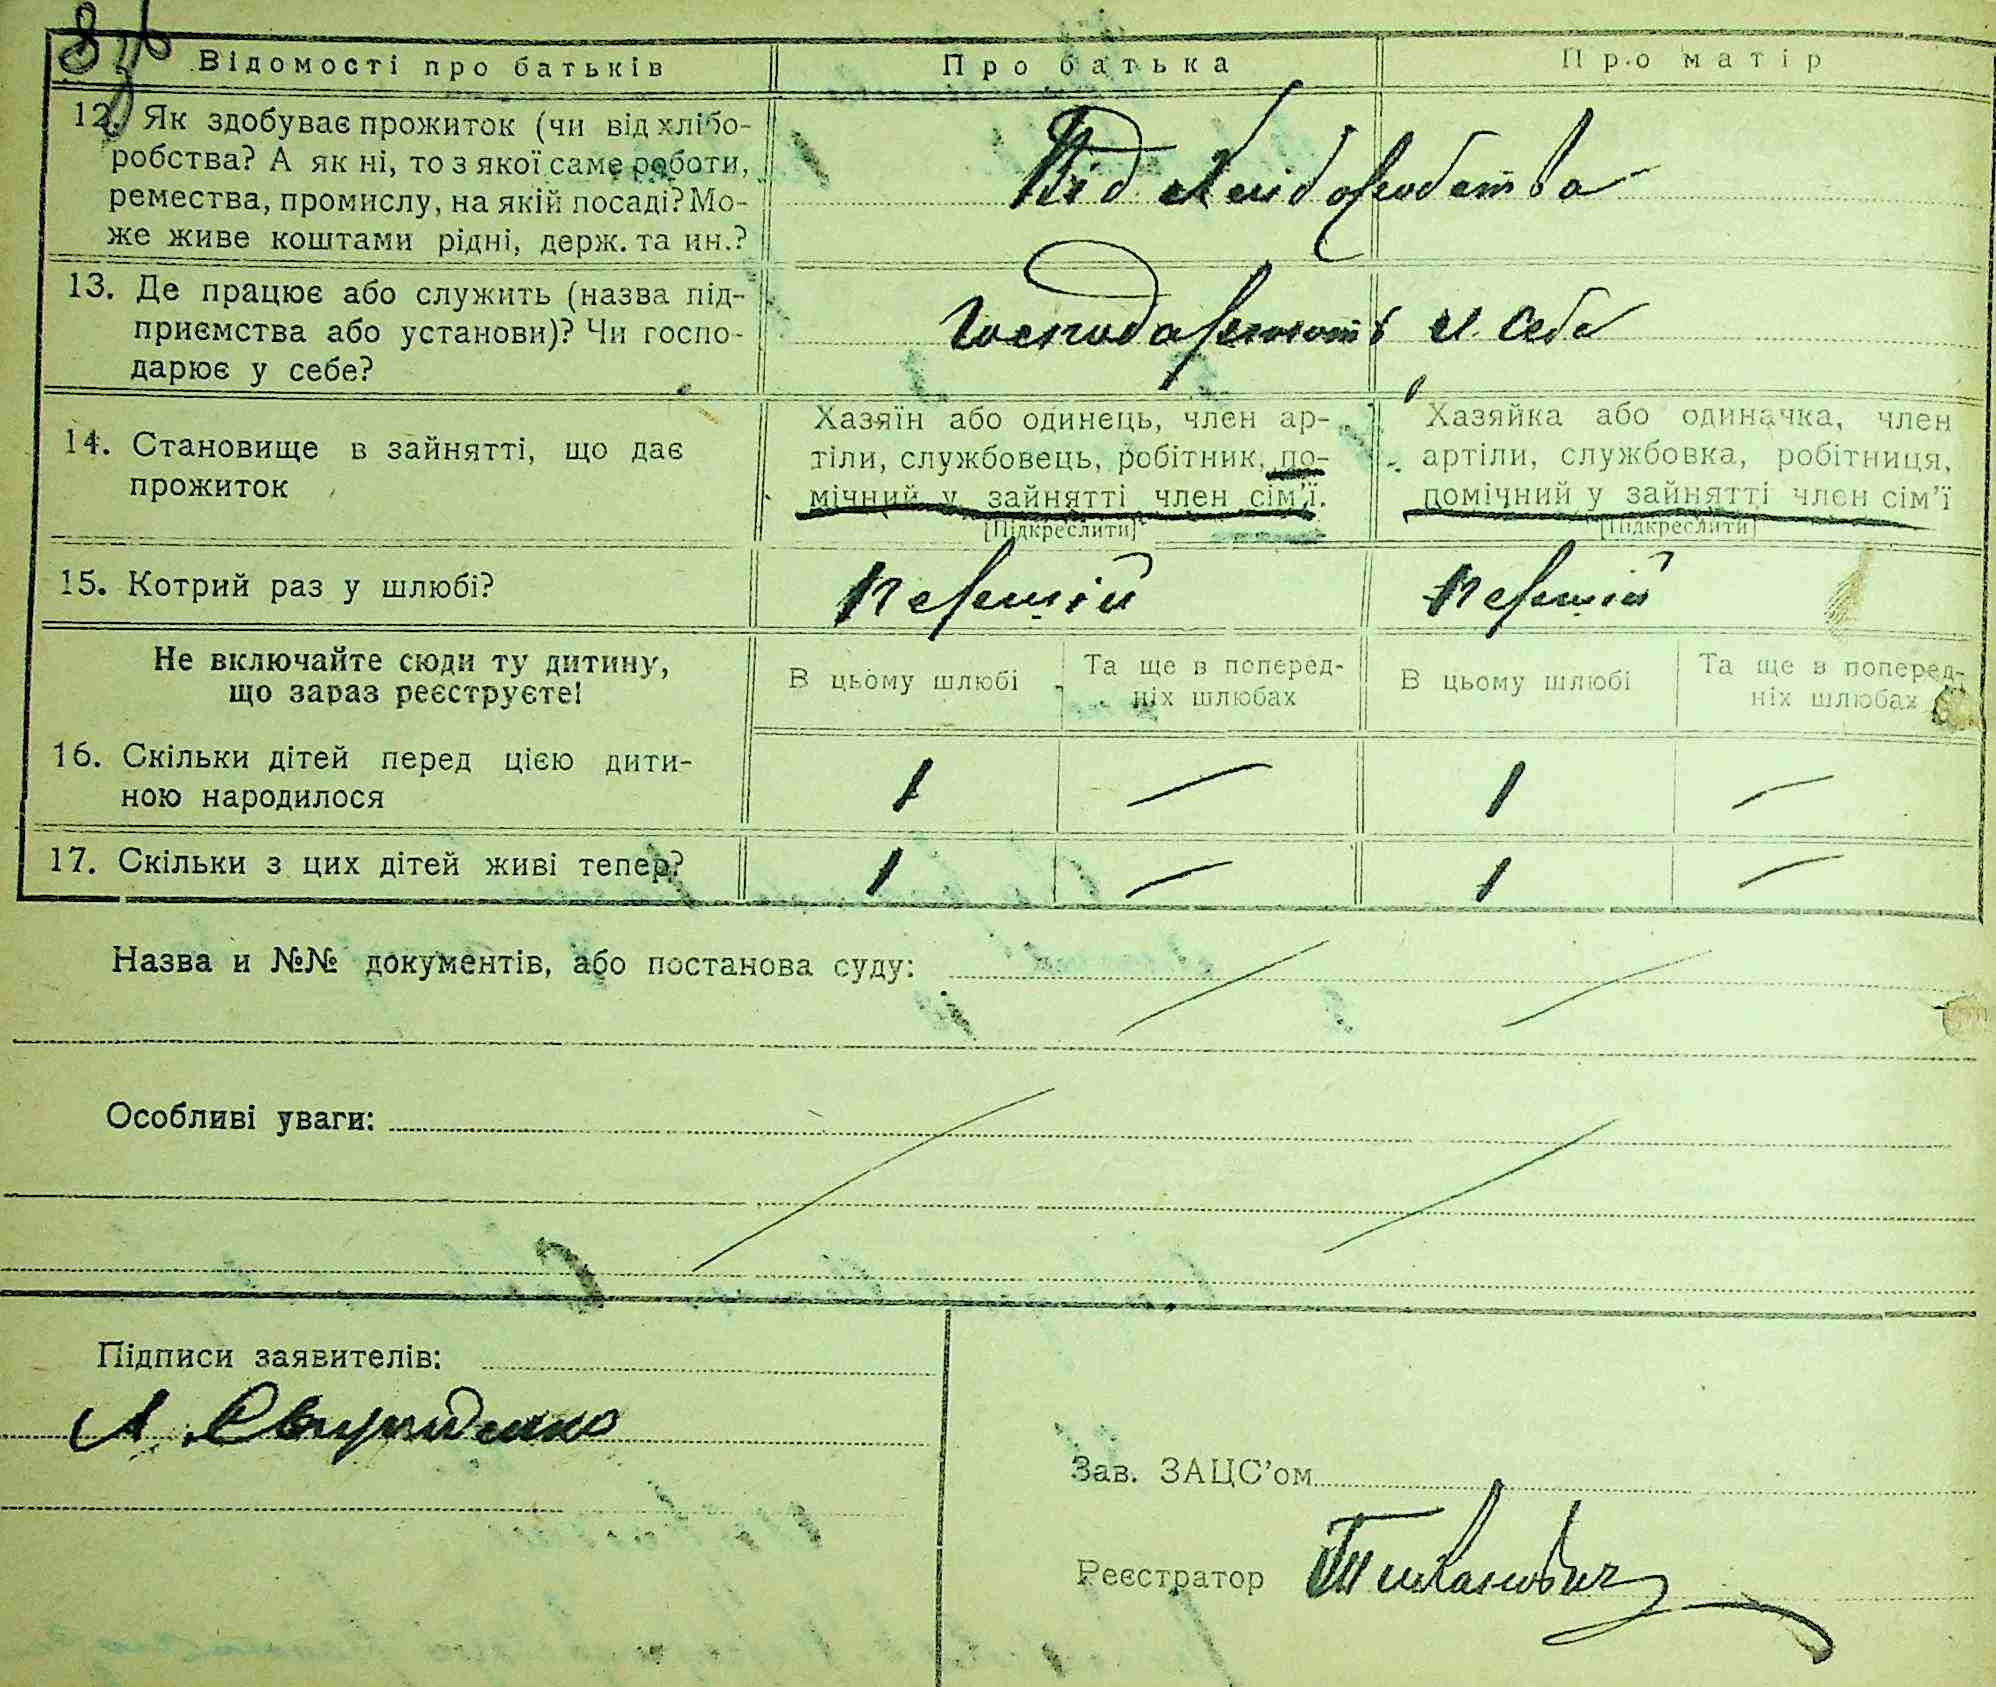 Відомості про батьків
Про батька
Про матір
12. Як здобуває прожиток (чи від хлібо-
робства? А як ні, то з якої саме роботи,
ремества, промислу, на якій посаді? Мо-
же живе коштами рідні, держ. та ин.?
Від хліборобства
13. Де працює або служить (назва під-
приємства або установи)? Чи госпо-
дарює у себе?
Господарюють у себе
14. Становище в зайнятті, що дає
прожиток
Хазяїн або одинець, член ар-
тіли, службовець, робітник, по-
мічний у зайнятті член сім'ї.
[Підкреслити]
Хазяйка або одиначка, член
артіли, службовка, робітниця,
помічний у зайнятті член сім'ї
[Підкреслити]
15. Котрий раз у шлюбі?
перший
перший
Не включайте сюди ту дитину,
що зараз реєструєте!
В цьому шлюбі
Та ще в поперед-
ніх шлюбах
В цьому шлюбі
Та ще в поперед-
ніх шлюбах
16. Скільки дітей перед цією дити-
ною народилося
1 — 1 —
17. Скільки з цих дітей живі тепер?
1 — 1 —
Назва и №№ документів, або постанова суду:
Особливі уваги:
Підписи заявителів:
Свириденко
Зав. ЗАЦС'ом
Реєстратор